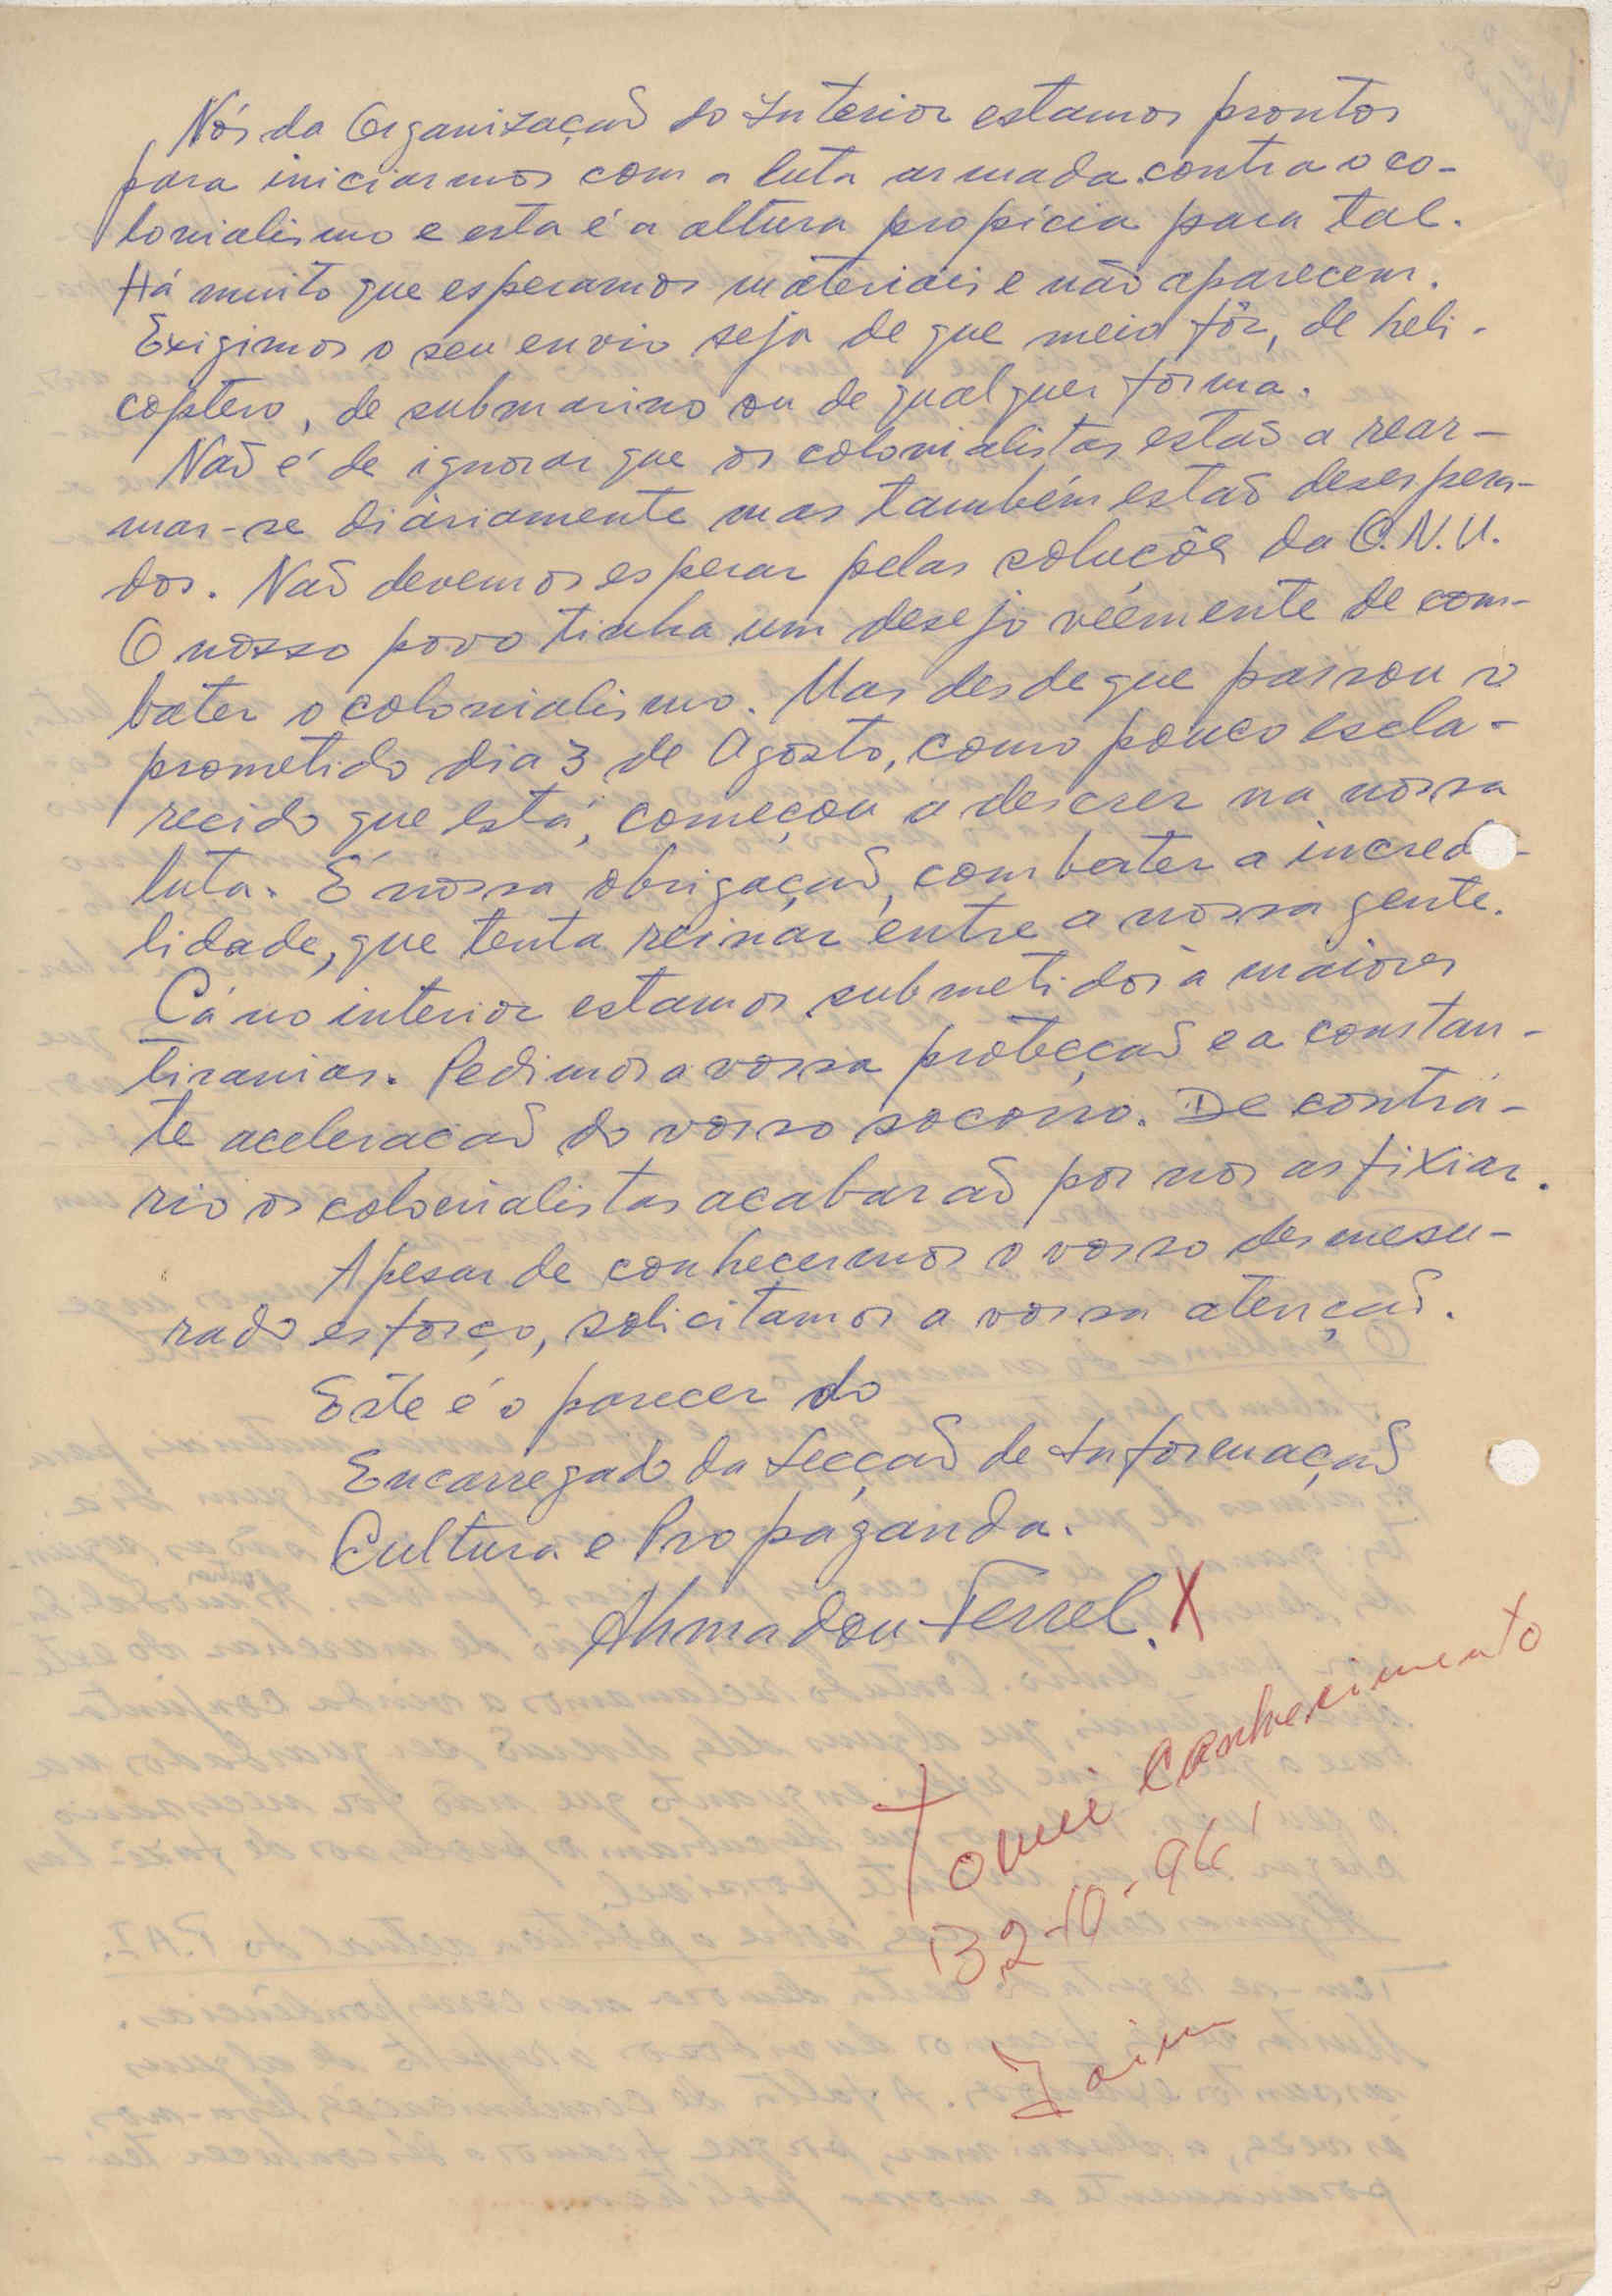 Nós da Organização do Interior estamos prontos
para iniciarmos com a luta armada contra o co-
lonialismo e esta é a altura propícia para tal.
Há muito que esperamos materiais e não aparecem.
Exigimos o seu envio seja de que meio fôr, de heli-
coptero, de submarino ou de qualquer forma.
Não é de ignorar que os colonialistas estão a rear-
mar-se diàriamente mas também estão desespera-
dos. Não devemos esperar pelas soluçõe da O.N.U.
O nosso povo tinha um desejo veémente de com-
bater o colonialismo. Mas desde que passou o
prometido dia 3 de Agosto, como pouco escla-
recido que está, começou a descrer na nossa
luta. É nossa obrigação, combater a incred
lidade, que tenta reinar entre a nossa gente.
Cá no interior estamos submetidos à maiores
tiranias. Pedimos a vossa protecção e a constan-
te aceleração do vosso socorro. De contrá-
rio os colonialistas acabarão por nos asfixiar.
Apesar de conhecermos o vosso desmesu-
rado esforço, solicitamos a vossa atenção.
Êste é o parecer do
Encarregado da Secção de Informação
Cultura e Propaganda.
Ahmadou Ferrel. X
Tomei conhecimento